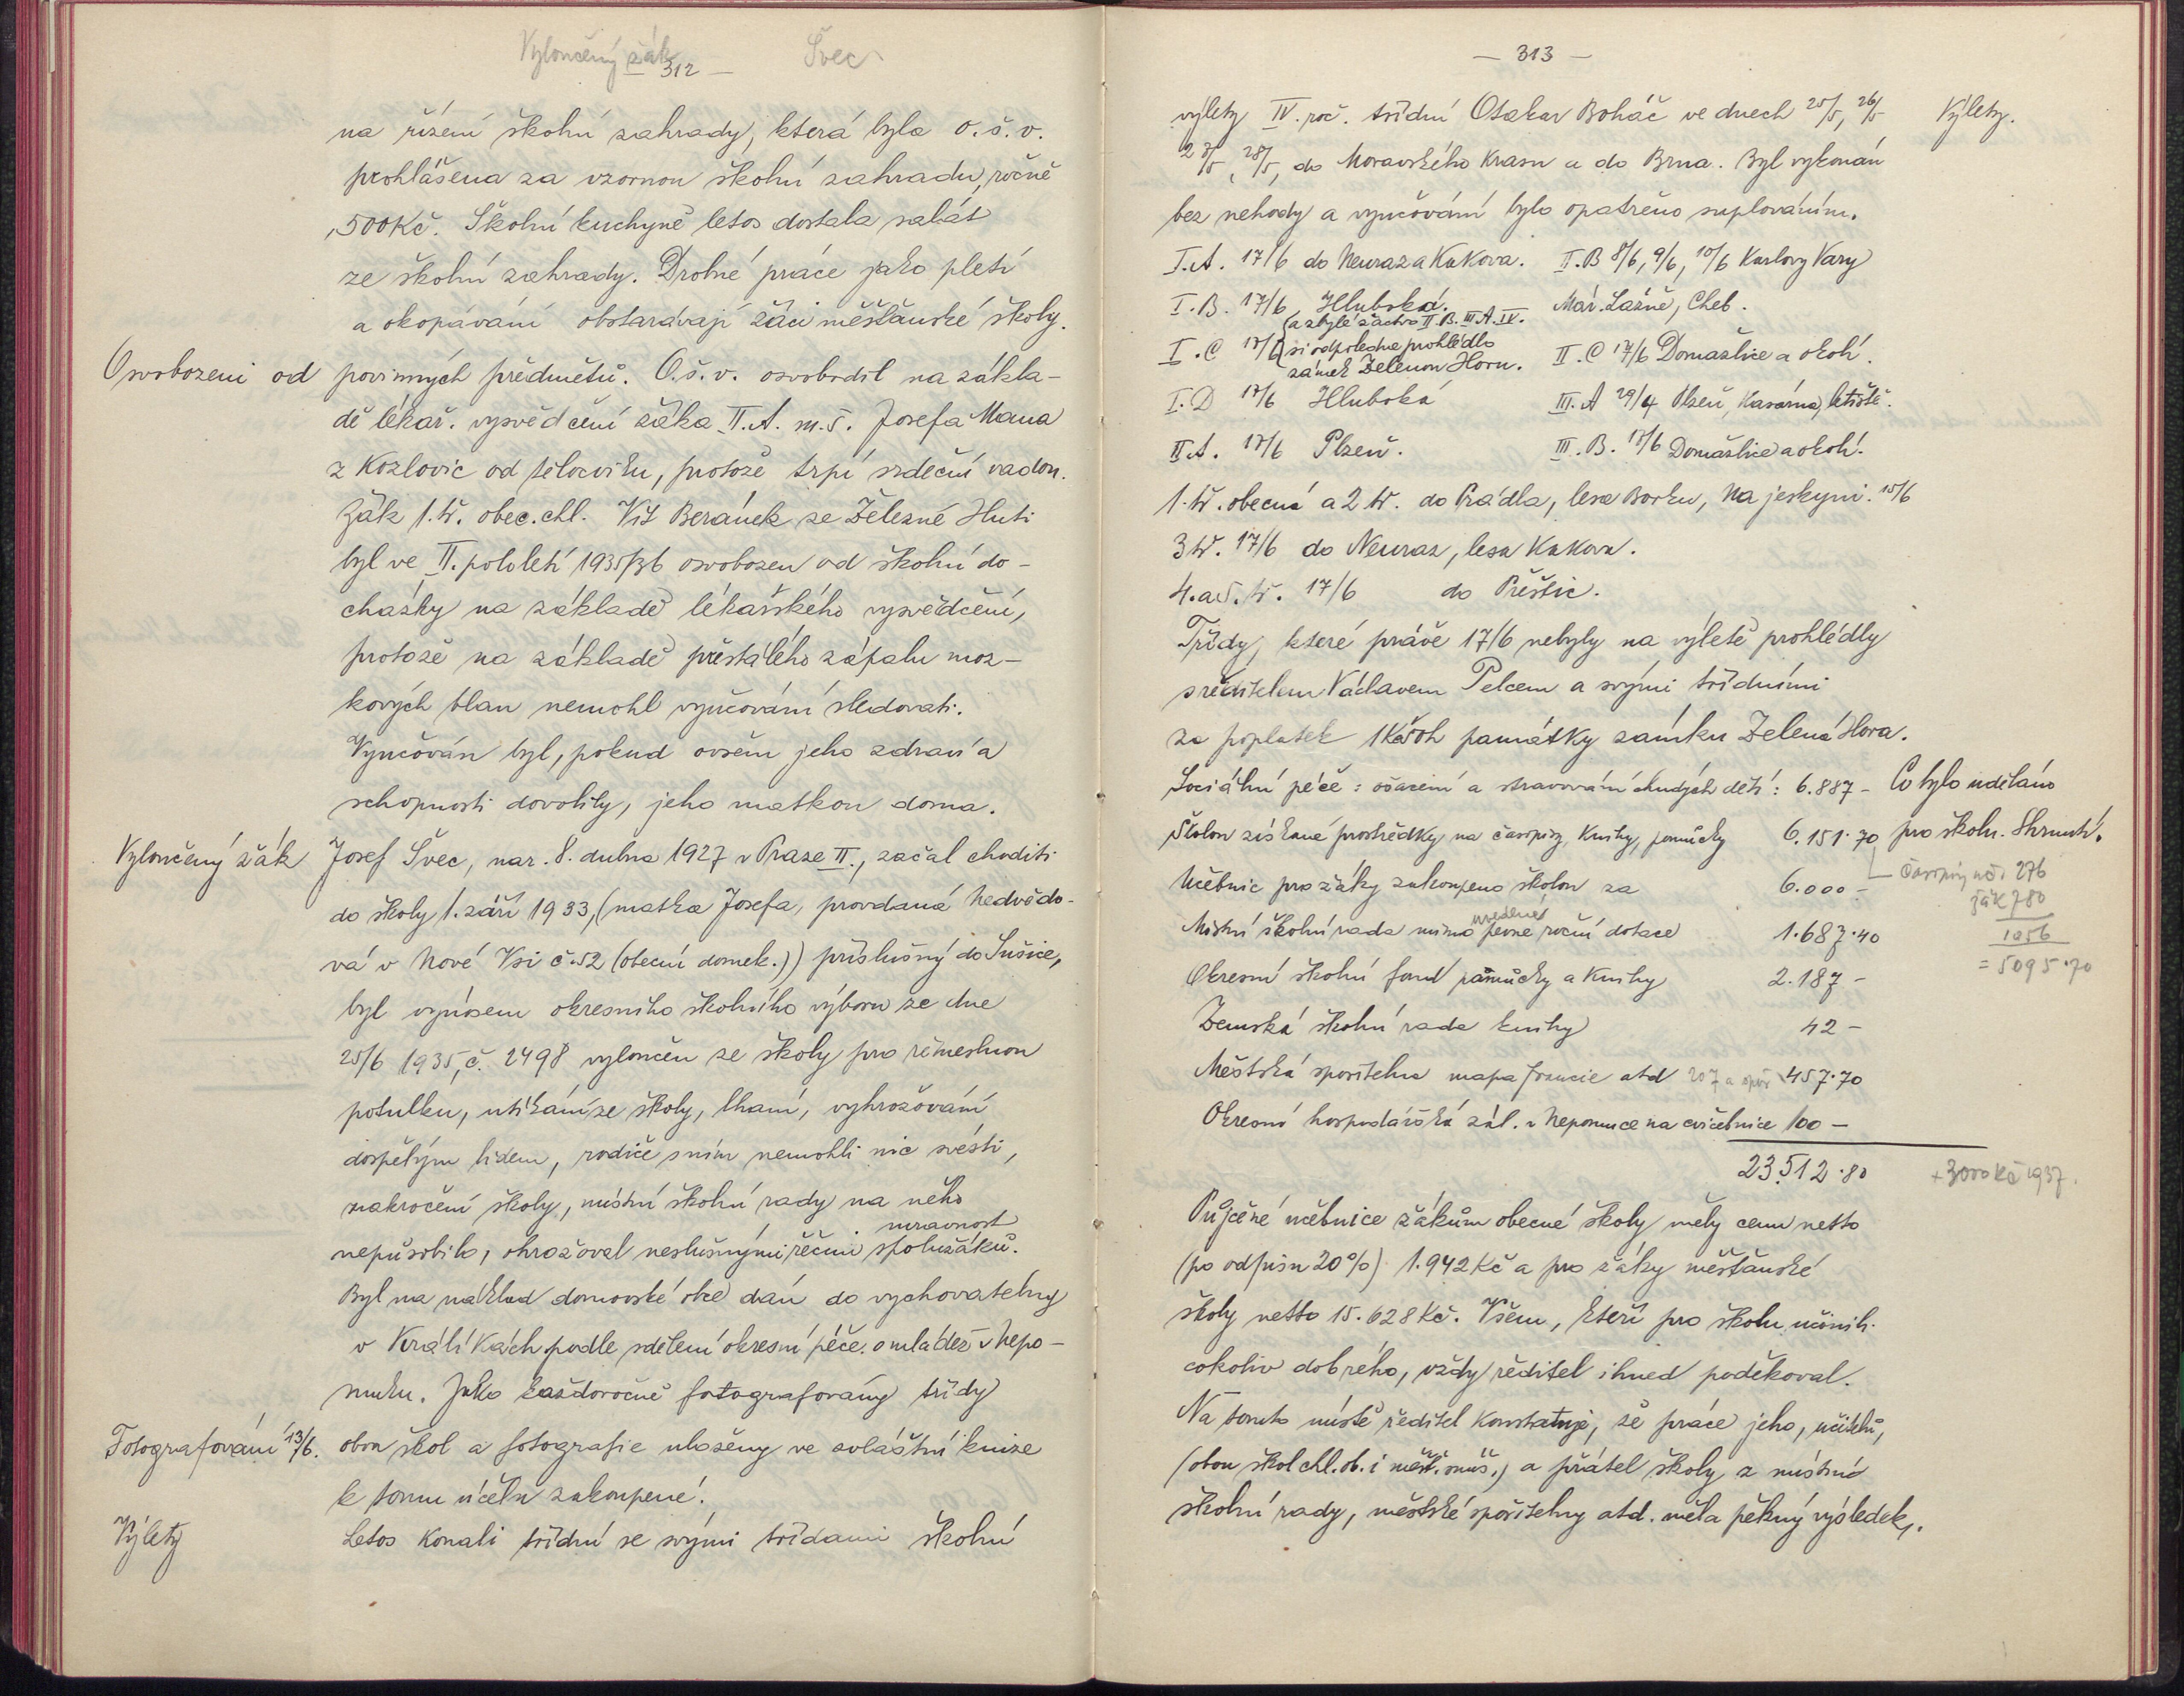 Vyloučený žák Švec
— 312 —
na řízení školní zahrady, která byla o.š.v.
prohlášena za vzornou školní zahradu, ročně
500 Kč. Školní kuchyně letos dostala salát
ze školní zahrady. Drobné práce jako pletí
a okopávání obstarávají žáci měšťanské školy.
Osvobození od povinných předmětů. O.š.v. osvobodil na zákla-
dě lékař. vysvědčení žáka II.A. m.š. Josefa Mana
z Kozlovic od tělocviku, protože trpí srdeční vadou.
Žák 1. tř. obec. chl. Vít Beránek ze Železné Huti
byl ve II. pololetí 1935/36 osvobozen od školní do-
cházky na základě lékařského vysvědčení,
protože na základě přestálého zápalu moz-
kových blan nemohl vyučování sledovati.
Vyučován byl, pokud ovšem jeho zdraví a
schopnosti dovolily, jeho matkou doma.
Vyloučený žák Josef Švec, nar. 8. dubna 1927 v Praze II., začal choditi
do školy 1. září 1933, (matka Josefa, provdaná Nedvědo-
vá v Nové Vsi č. 52 (obecní domek.)) příslušný do Sušice,
byl výnosem okresního školního výboru ze dne
25/6 1935, č. 2498 vyloučen ze školy pro řemeslnou
potulku, utíkání ze školy, lhaní, vyhrožování
dospělým lidem, rodiče s ním nemohli nic svésti,
zakročení školy, místní školní rady na něho
mravnost
nepůsobilo, ohrožoval neslušnými řečmi spolužáků.
Byl na náklad domovské obce dán do vychovatelny
v Králíkách podle sdělení okresní péče o mládež v Nepo-
muku. Jako každoročně fotografovány třídy
Fotografování 13/6. obou škol a fotografie uloženy ve zvláštní knize
k tomu účelu zakoupené.
Výlety Letos konali třídní se svými třídami školní
— 313 —
výlety IV. roč. třídní Otakar Boháč ve dnech 25/5, 26/5 Výlety.
27/5, 28/5, do Moravského Krasu a do Brna. Byl vykonán
bez nehody a vyučování bylo opatřeno suplováním.
I.A. 17/6 do Neuraz a Kakova. II.B 8/6, 9/6, 10/6 Karlovy Vary
I.B. 17/6 Hluboká. Mar. Lázně, Cheb.
(a zbylé žactvo II.B. III.A. IV.
I.C 17/6 si odpoledne prohlédlo II.C 17/6 Domažlice a okolí.
zámek Zelenou Horu.
I.D 17/6 Hluboká III.A 29/4 Plzeň, Kasárna, letiště.
II.A. 17/6 Plzeň. III.B. 17/6 Domažlice a okolí.
1. tř. obecná a 2 tř. do Prádla, lesa Borku, Na jeskyni. 15/6
3 tř. 17/6 do Neuraz, lesa Kakova.
4. a 5. tř. 17/6 do Přeštic.
Třídy, které právě 17/6 nebyly na výletě prohlédly
s ředitelem Václavem Pelcem a svými třídními
za poplatek 1 Kč 50h památky zámku Zelená Hora.
Sociální péče: ošacení a stravování chudých dětí: 6.887 – Co bylo uděláno
Školou získané prostředky na časopisy, Knihy, pomůcky 6.151.70 pro školu. Shrnutí.
Časopisy 276
Učebnic pro žáky zakoupeno školou za 6.000 –
žák 780
uvedené
Místní školní rada mimo pevné roční dotace 1.687.40
1056
= 5095.70
Okresní školní fond pomůcky a Knihy 2.187 –
Zemská školní rada knihy 42 –
Městská spořitelna mapa Francie atd 207 a 457.70
Okresní hospodářská zál. v Nepomuce na cvičebnice 100 –
23.512.80 + 3000 Kč 1937.
Půjčené učebnice žákům obecné školy měly cenu netto
(po odpisu 20%) 1.942 Kč a pro žáky měšťanské
školy netto 15.628 Kč. Všem, kteří pro školu učinili
cokoliv dobrého, vždy ředitel ihned poděkoval.
Na tomto místě ředitel konstatuje, že práce jeho, učitelů,
(obou škol chl. ob. i měšť. smíš.) a přátel školy z místní
školní rady, městské spořitelny atd. měla pěkný výsledek.